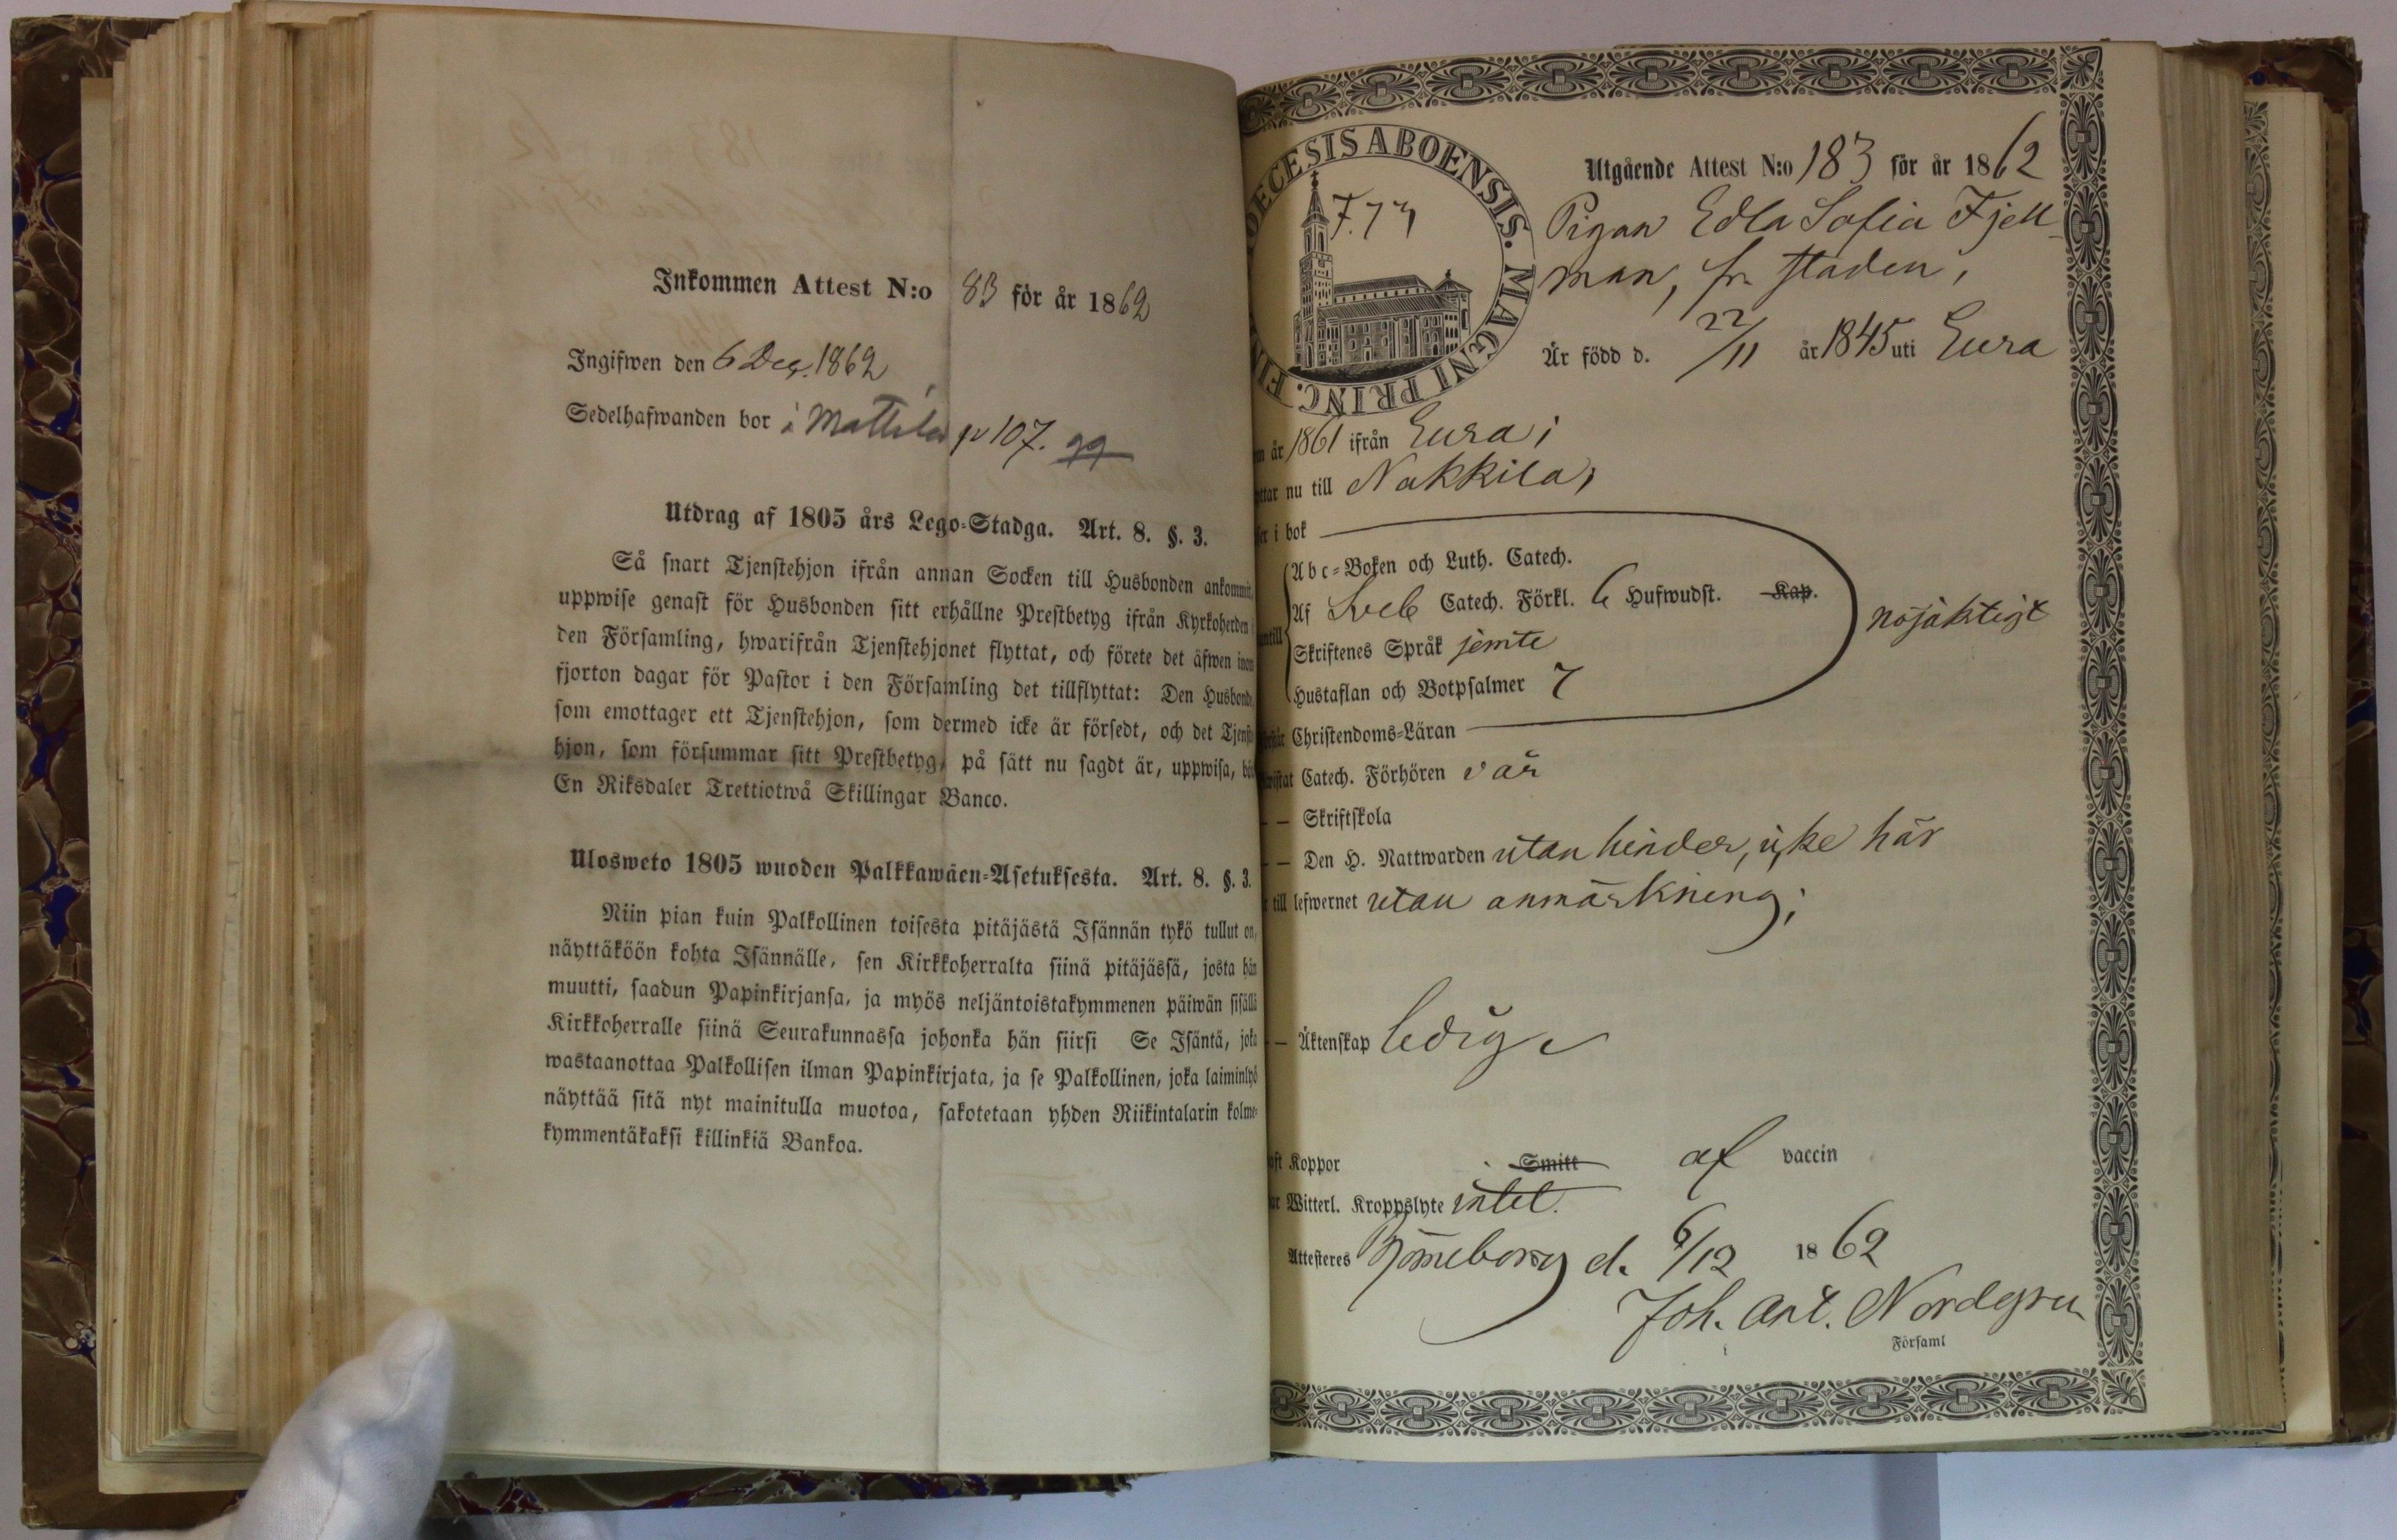 Inkommen Attest N:o 83 för år 1862
Ingifwen den 6 Dec. 1862
Sedelhafwanden bor i Mattila p 107.
Utdrag af 1805 års Lego-Stadga. Art. 8. §. 3.
Så snart Tjenstehjon ifrån annan Socken till Husbonden ankommit,
uppwise genast för Husbonden sitt erhållne Prestbetyg ifrån Kyrkoherden i
den Församling, hwarifrån Tjenstehjonet flyttat, och förete det äfwen inom
fjorton dagar för Pastor i den Församling det tillflyttat: Den Husbonde,
som emottager ett Tjenstehjon, som dermed icke är försedt, och det Tjenste-
hjon, som försummar sitt Prestbetyg, på sätt nu sagdt är, uppwisa, böte
En Riksdaler Trettiotwå Skillingar Banco.
Ulosweto 1805 wuoden Palkkawäen-Asetuksesta. Art. 8. §. 3.
Niin pian kuin Palkollinen toisesta pitäjästä Isännän tykö tullut on,
näyttäköön kohta Isännälle, sen Kirkkoherralta siinä pitäjässä, josta hän
muutti, saadun Papinkirjansa, ja myös neljäntoistakymmenen päiwän sisällä
Kirkkoherralle siinä Seurakunnassa johonka hän siirsi Se Isäntä, joka
wastaanottaa Palkollisen ilman Papinkirjata, ja se Palkollinen, joka laiminlyö
näyttää sitä nyt mainitulla muotoa, sakotetaan yhden Riikintalarin kolme-
kymmentäkaksi killinkiä Bankoa.
OECESIS ABOENSIS. MAGNI PRINC. FI
Utgående Attest N:o 183 för år 1862
Pigan Edla Sofia Fjell-
man, fr. staden,
Är född d. 22/11 år 1845 uti Eura
år 1861 ifrån Eura;
ttar nu till Nakkila;
er i bok
Abc-Boken och Luth. Catech.
Af Sveb Catech. Förkl. 6 Hufwudst. Kap.
nöjaktigt
Skriftenes Språk jemte
Hustaflan och Botpsalmer 7
Christendoms-Läran
istat Catech. Förhören i år
— Skriftskola
— Den H. Nattwarden utan hinder, icke här
till lefwernet utan anmärkning;
— Äktenskap ledig
ft Koppor Smitt af vaccin
ar Witterl. Kroppslyte intet.
Attesteres Björneborg d. 6/12 1862
Joh. Art. Nordgren
Församl